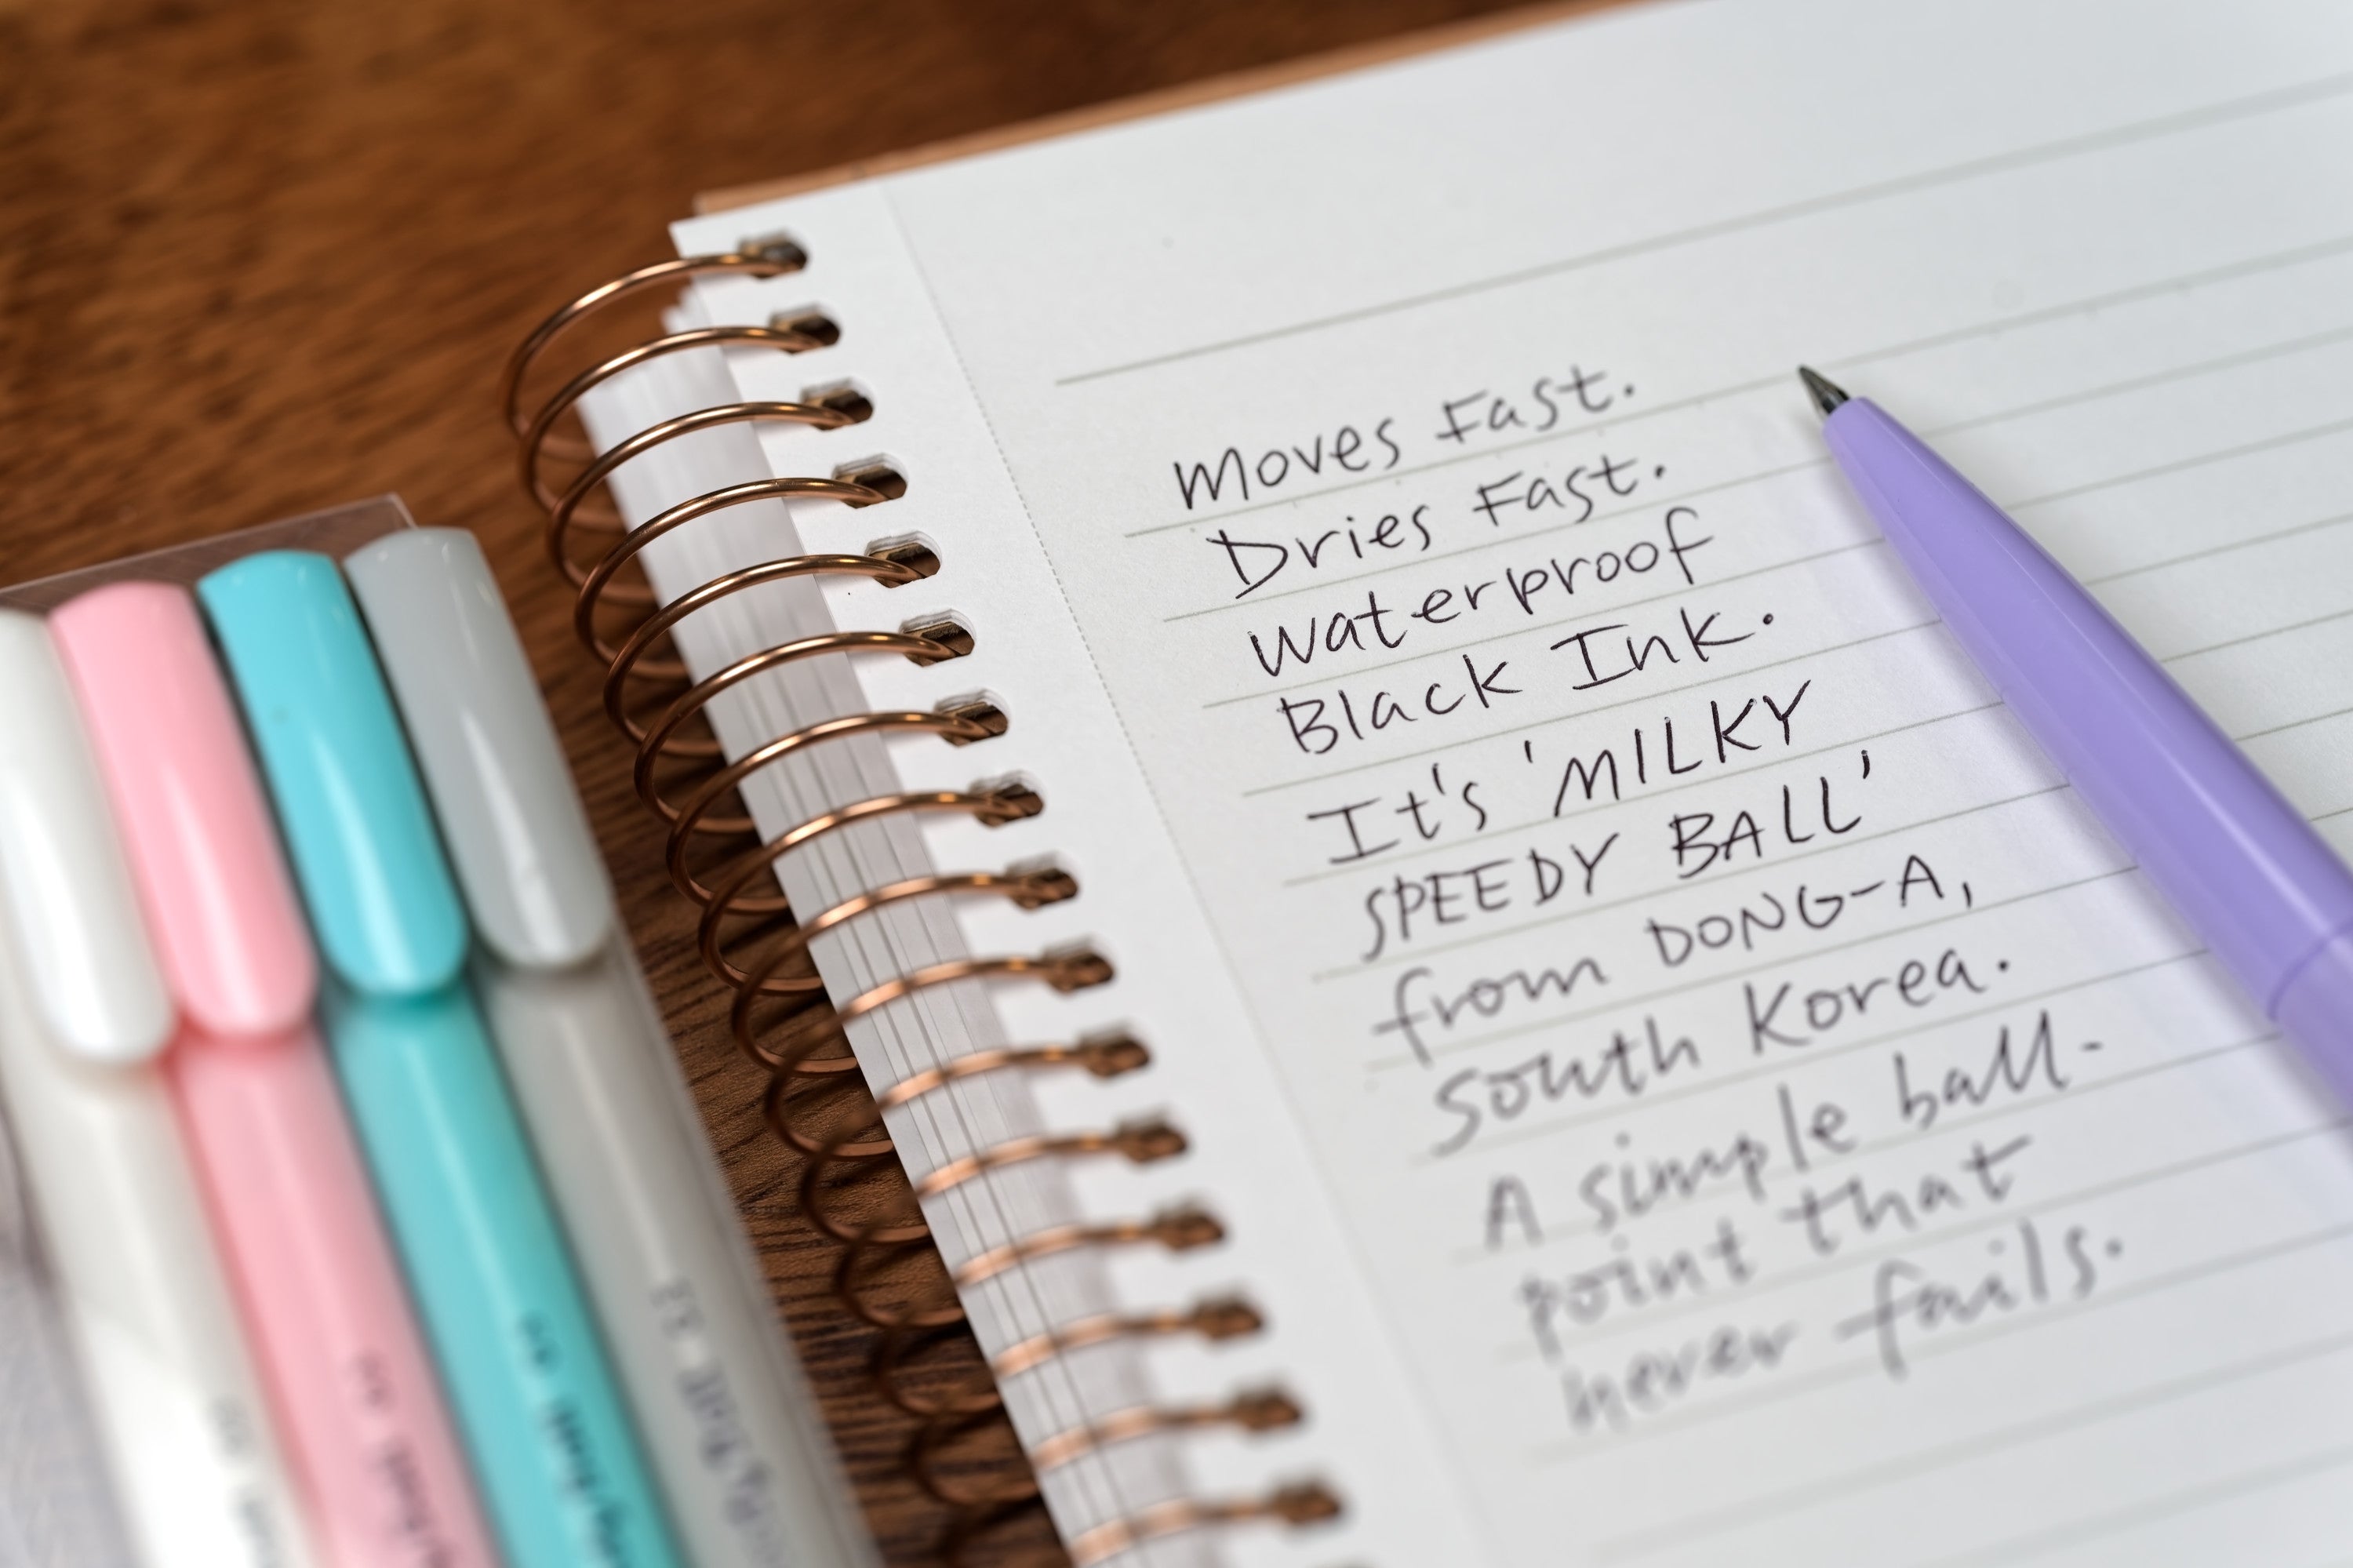 Moves Fast.
Dries Fast.
Waterproof
Black Ink.
It's 'MILKY
SPEEDY BALL'
from DONG-A,
South Korea.
A simple ball-
point that
never fails.